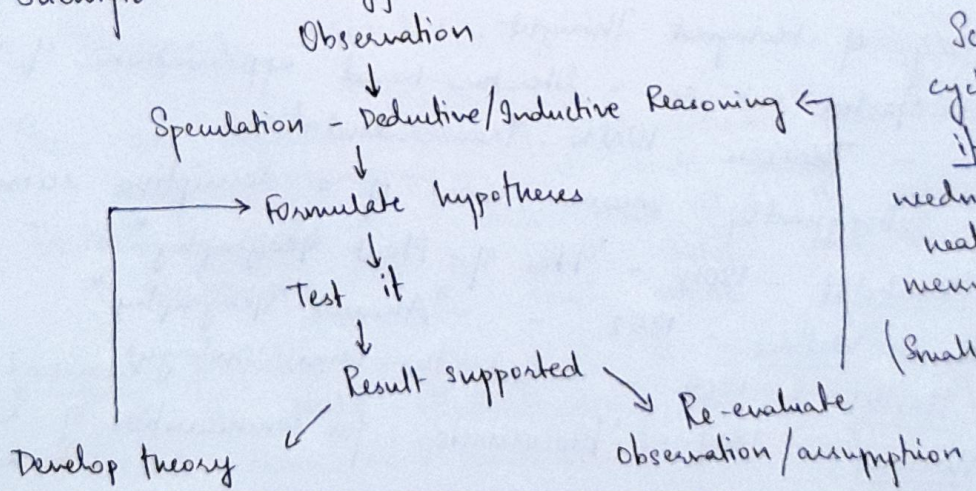 Observation
Speculation - Deductive/Inductive Reasoning
Formulate hypotheses
Test it
Result supported
Re-evaluate
Develop theory
observation/assumption
(Small